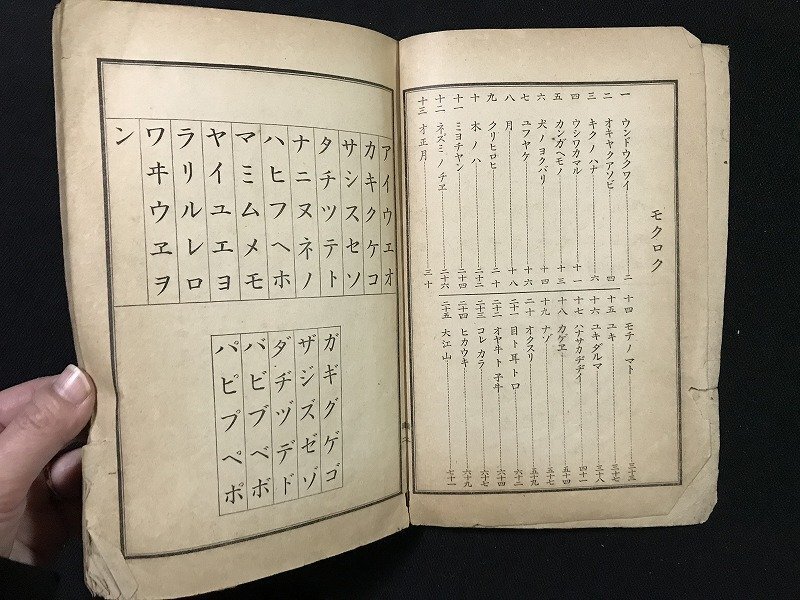 モクロク
一 ウンドウクワイ 二
二 オキヤクアソビ 四
三 キクノハナ 六
四 ウシワカマル 十一
五 カンガヘモノ 十三
六 犬ノヨクバリ 十四
七 ユフヤケ 十六
八 月 十八
九 クリヒロヒ 二十
十 木ノハ 二十二
十一 ミヨチヤン 二十四
十二 ネズミノチヱ 二十六
十三 オ正月 三十
十四 モチノマト 三十五
十五 ユキ 三十七
十六 ユキダルマ 三十八
十七 ハナサカヂヂイ 四十一
十八 カゲヱ 五十四
十九 ナゾ 五十七
二十 オクスリ 五十九
二十一 目ト耳ト口 六十二
二十二 オヤ牛ト子牛 六十四
二十三 コレカラ 六十七
二十四 ヒカウキ 六十九
二十五 大江山 七十一
アイウエオ
カキクケコ
サシスセソ
タチツテト
ナニヌネノ
ハヒフヘホ
マミムメモ
ヤイユエヨ
ラリルレロ
ワヰウヱヲ
ン
ガギグゲゴ
ザジズゼゾ
ダヂヅデド
バビブベボ
パピプペポ